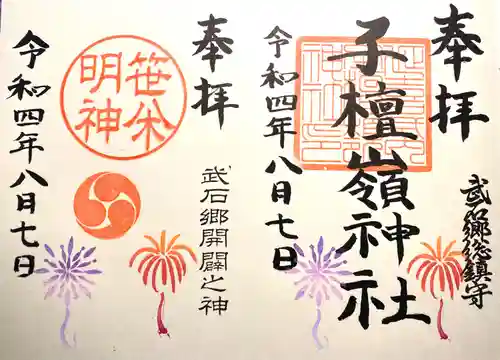 奉拝
武石郷総鎮守
子檀嶺神社
令和四年八月七日
奉拝
武石郷開闢之神
笹焼
明神
令和四年八月七日